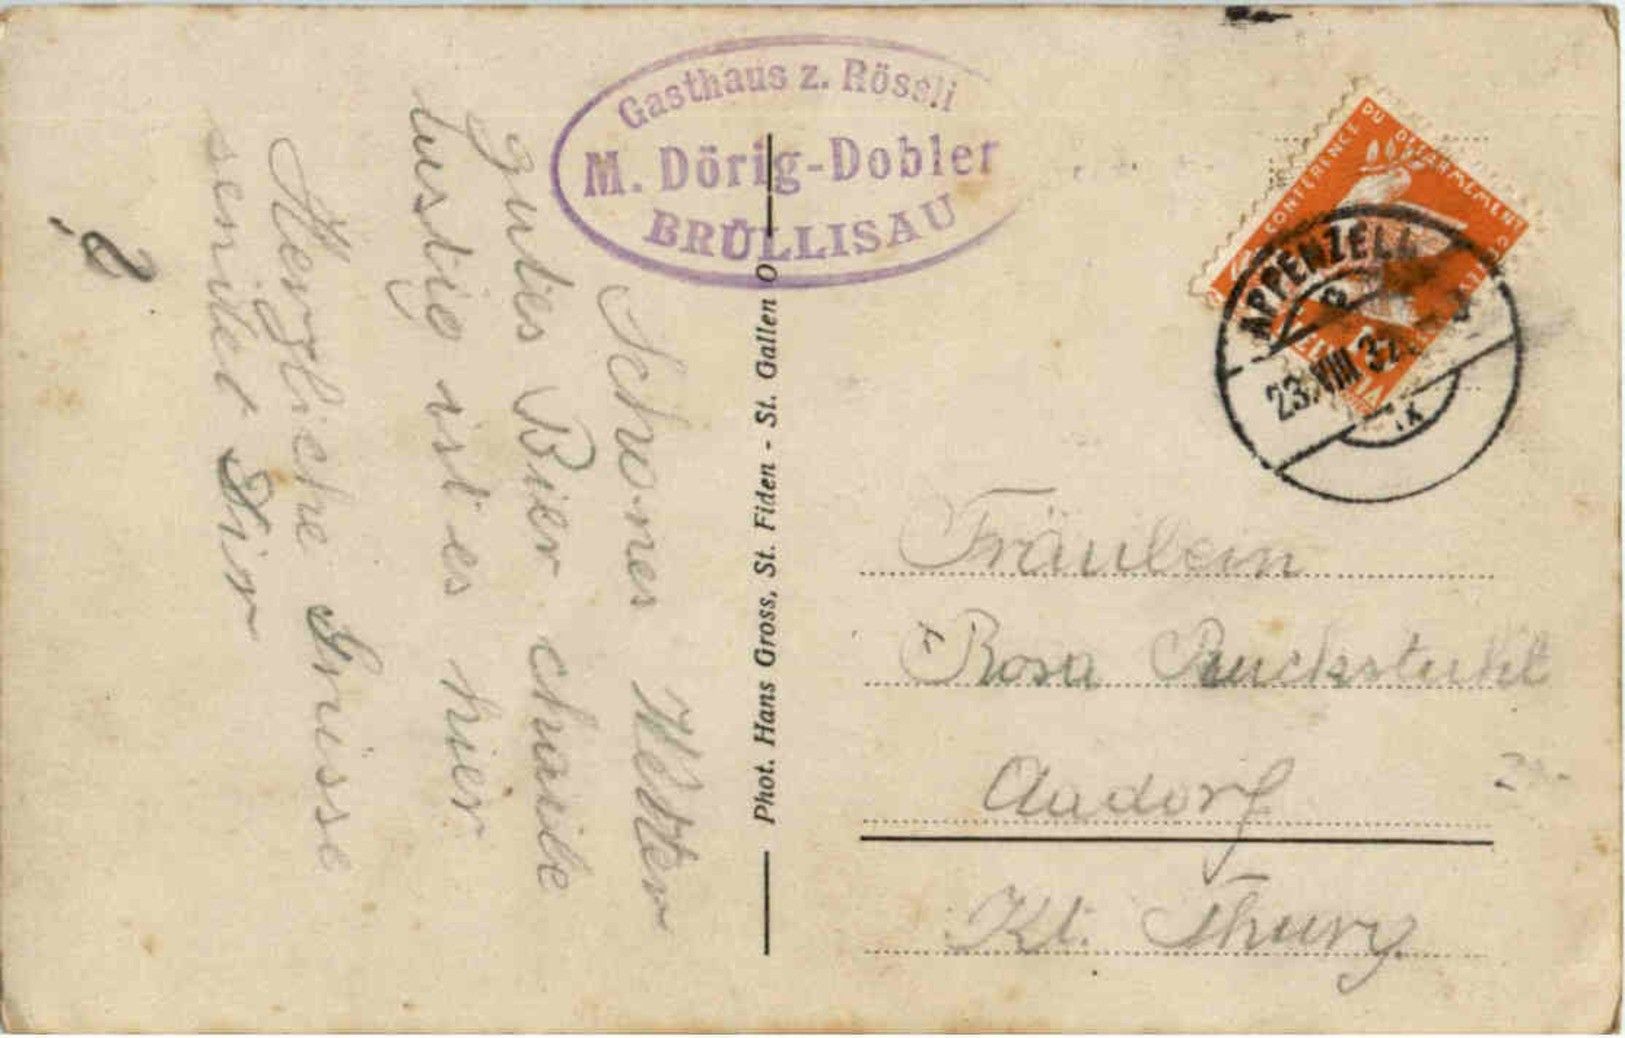 Gasthaus z. Rössli
M. Dörig-Dobler
BRÜLLISAU
Schönes Wetter
gutes Bier
lustig ist es hier
Herzliche Grüsse
sendet Dir
?
Phot. Hans Gross, St. Fiden - St. Gallen O
CONFERENCE DU DESARMEMENT
HELVETIA
APPENZELL
23.VIII 32
Fräulein
Rosa Ruckstuhl
Aadorf
Kt. Thurg.